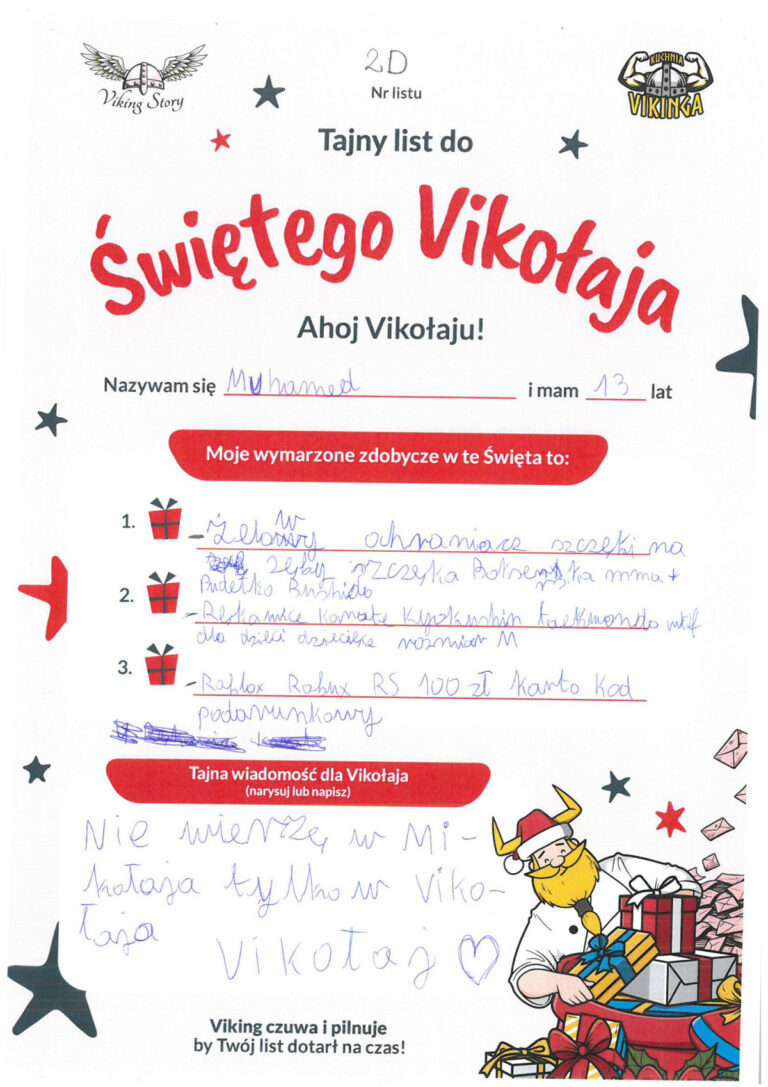 Viking Story
2D
Nr listu
KUCHNIA
VIKINGA
Tajny list do
Świętego Vikołaja
Ahoj Vikołaju!
Nazywam się Muhamed i mam 13 lat
Moje wymarzone zdobycze w te Święta to:
1. - Żelowy ochraniacz szczęki na
zęby szczęka Bokserska mma +
2. Pudełko Bushido
- Rękawice karate Kyokushin taekwondo wtf
dla dzieci dziecięce rozmiar M
3. - Roblox Robux RS 100 zł karta kod
podarunkowy
Tajna wiadomość dla Vikołaja
(narysuj lub napisz)
Nie wierzę w Mi-
kołaja tylko w Viko-
łaja
Vikołaj ♡
Viking czuwa i pilnuje
by Twój list dotarł na czas!